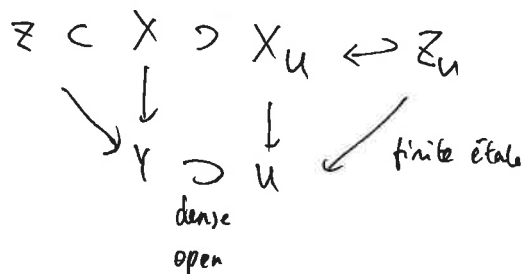 Z ⊂ X ⊃ X_U ↩ Z_U
Y ⊃ U finite étale
dense
open